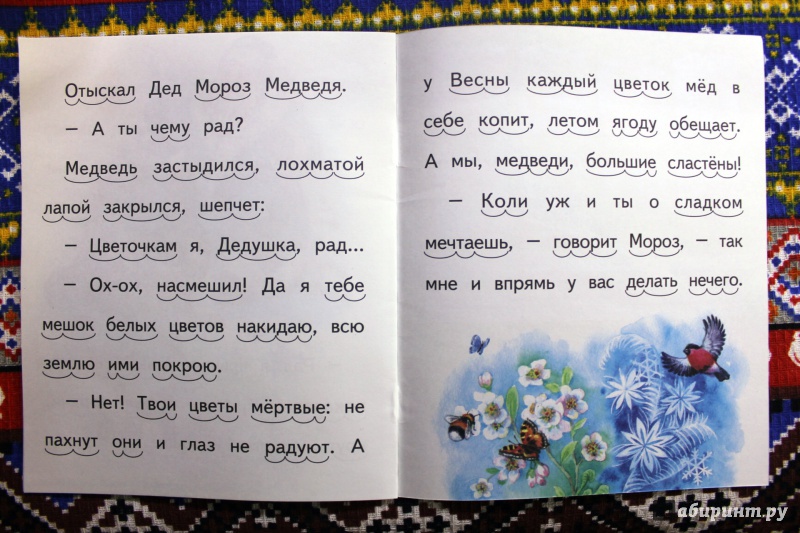 Отыскал Дед Мороз Медведя.
— А ты чему рад?
Медведь застыдился, лохматой
лапой закрылся, шепчет:
— Цветочкам я, Дедушка, рад...
— Ох-ох, насмешил! Да я тебе
мешок белых цветов накидаю, всю
землю ими покрою.
— Нет! Твои цветы мёртвые: не
пахнут они и глаз не радуют. А
у Весны каждый цветок мёд в
себе копит, летом ягоду обещает.
А мы, медведи, большие сластёны!
— Коли уж и ты о сладком
мечтаешь, — говорит Мороз, — так
мне и впрямь у вас делать нечего.
абиринт.ру